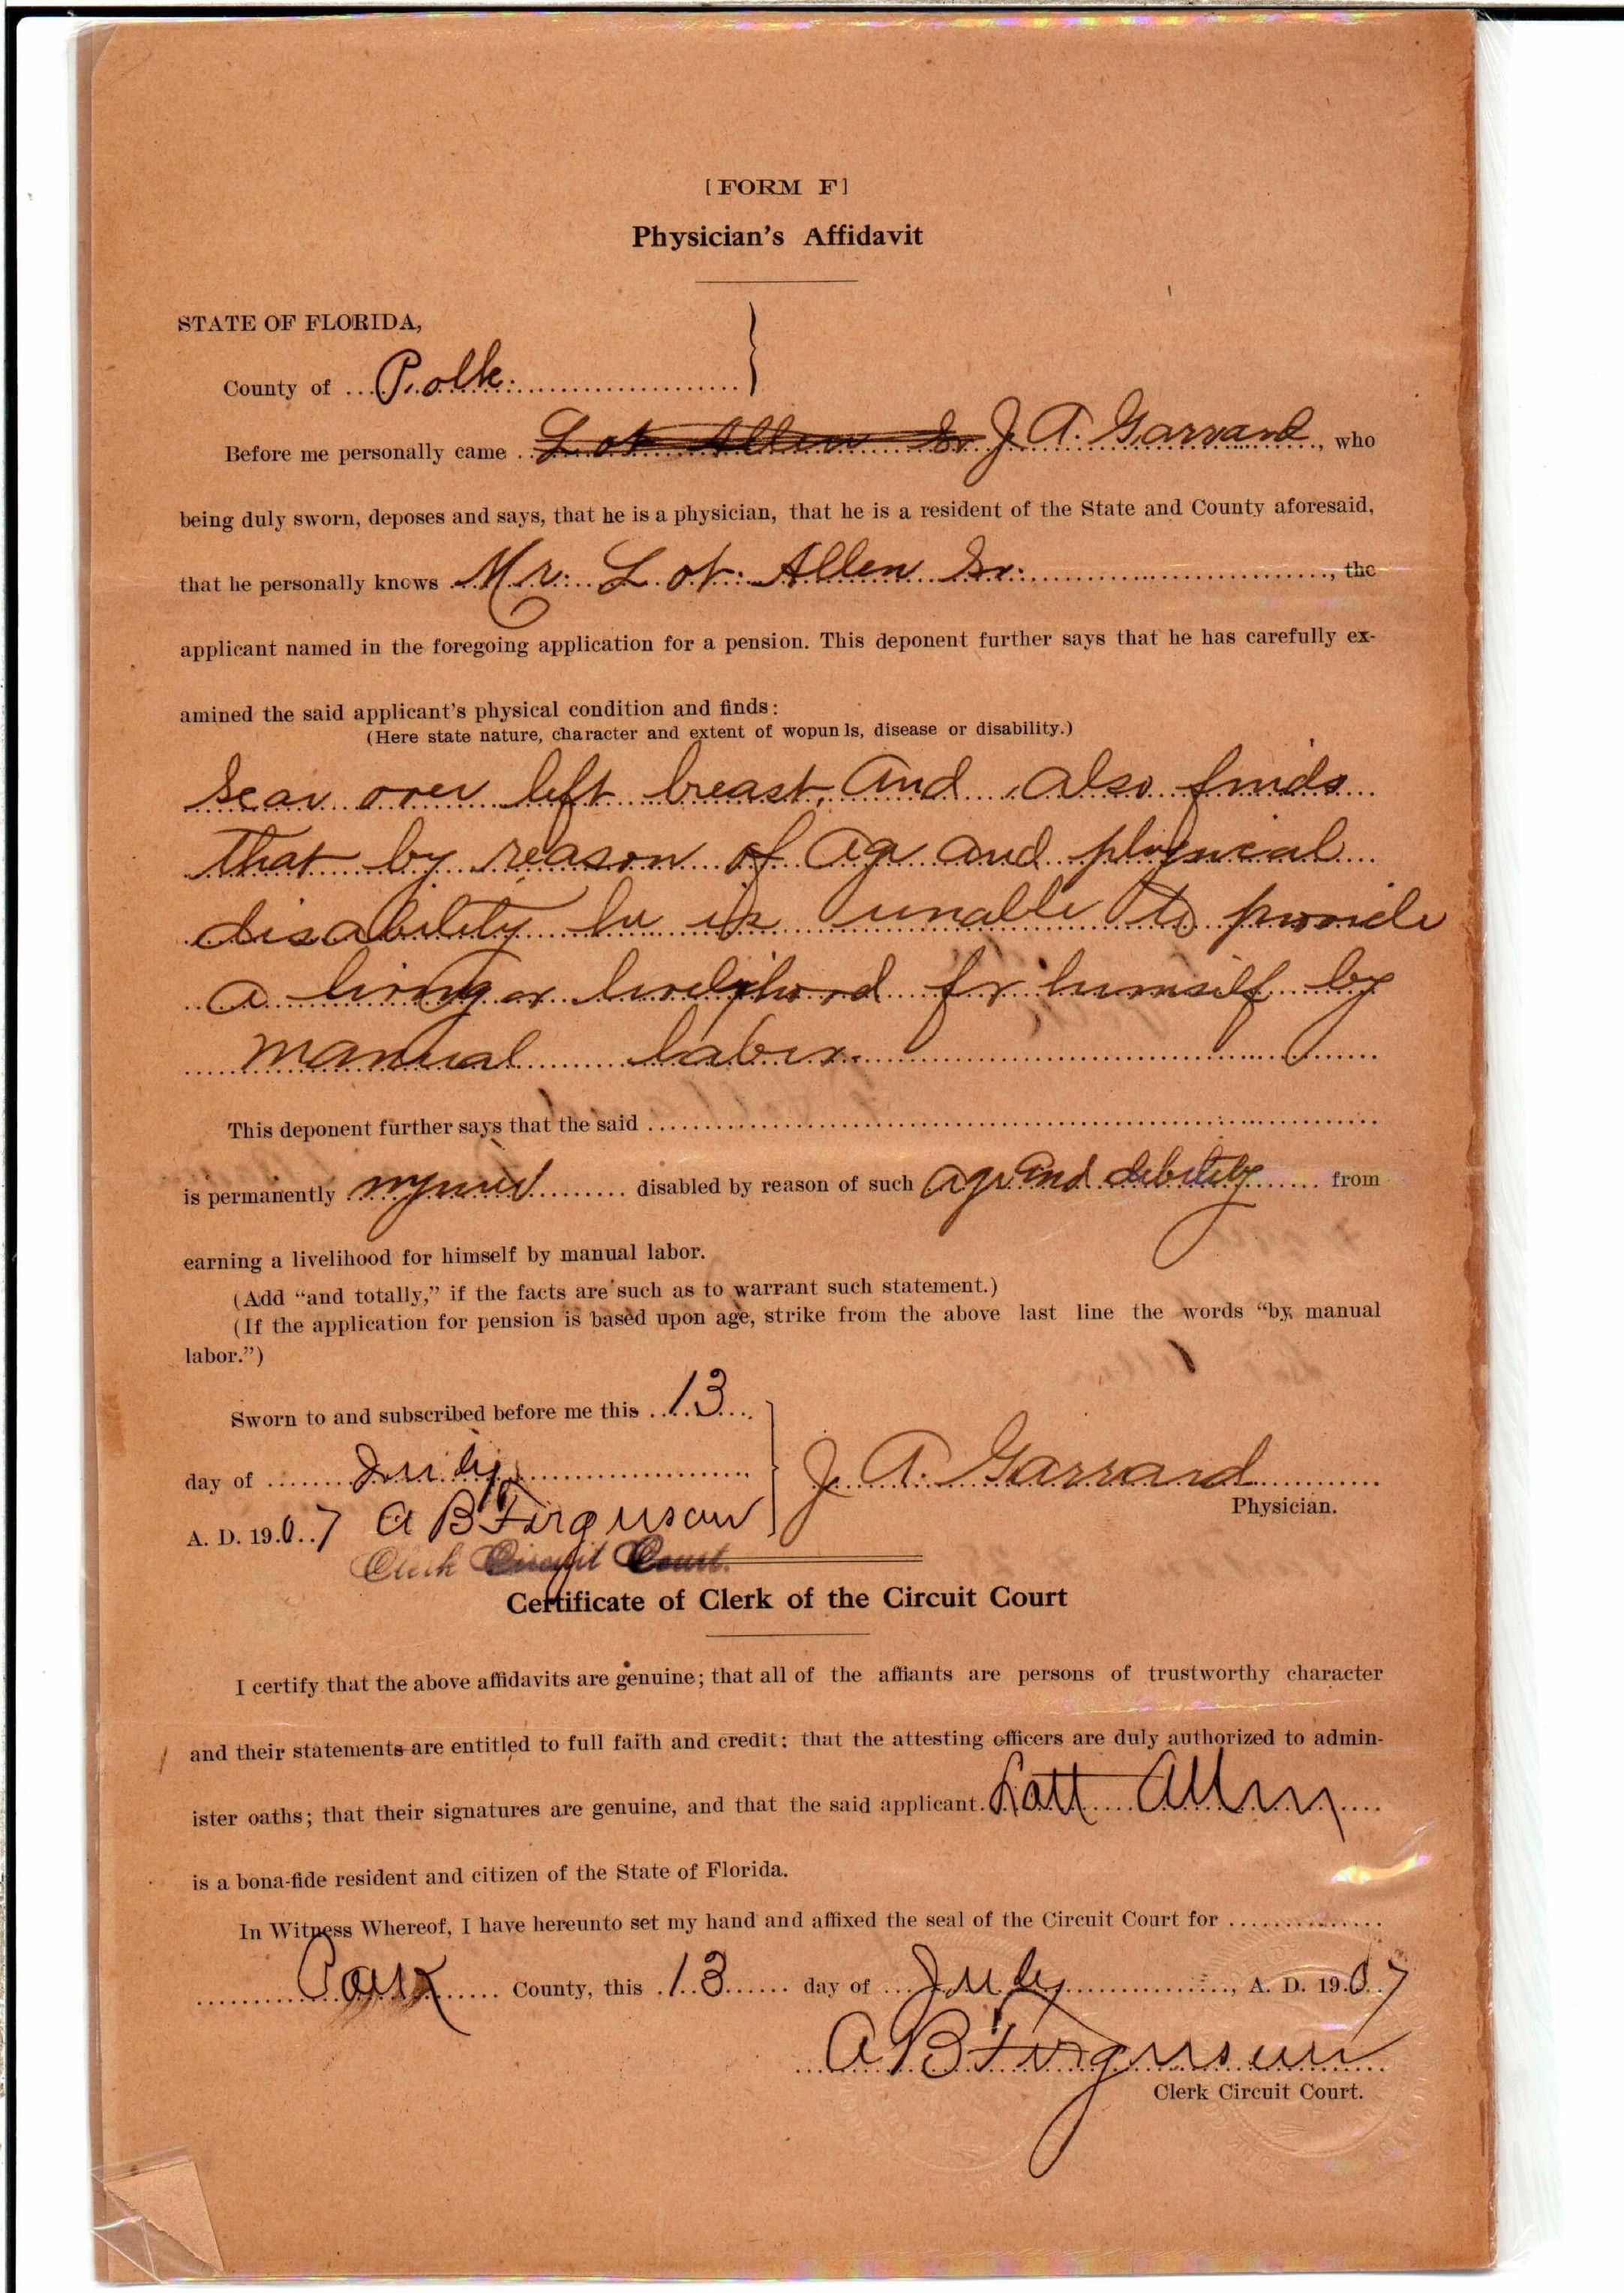 [FORM F]
Physician's Affidavit
STATE OF FLORIDA,
County of Polk
Before me personally came Lot Allen Sr J. A. Garrard, who
being duly sworn, deposes and says, that he is a physician, that he is a resident of the State and County aforesaid,
that he personally knows Mr. Lot Allen Sr., the
applicant named in the foregoing application for a pension. This deponent further says that he has carefully ex-
amined the said applicant's physical condition and finds:
(Here state nature, character and extent of wopun ls, disease or disability.)
Scar over left breast, and also finds
that by reason of age and physical
disability he is unable to provide
a living or livelihood for himself by
manual labor.
This deponent further says that the said
is permanently disabled by reason of such age and debility from
earning a livelihood for himself by manual labor.
(Add "and totally," if the facts are such as to warrant such statement.)
(If the application for pension is based upon age, strike from the above last line the words "by manual
labor.")
Sworn to and subscribed before me this 13
day of July
J. A. Garrard
Physician.
A. D. 1907 A B Ferguson
Clerk Circuit Court.
Certificate of Clerk of the Circuit Court
I certify that the above affidavits are genuine; that all of the affiants are persons of trustworthy character
and their statements are entitled to full faith and credit; that the attesting officers are duly authorized to admin-
ister oaths; that their signatures are genuine, and that the said applicant Latt Allen
is a bona-fide resident and citizen of the State of Florida.
In Witness Whereof, I have hereunto set my hand and affixed the seal of the Circuit Court for
Polk County, this 13 day of July, A. D. 1907
A B Ferguson
Clerk Circuit Court.